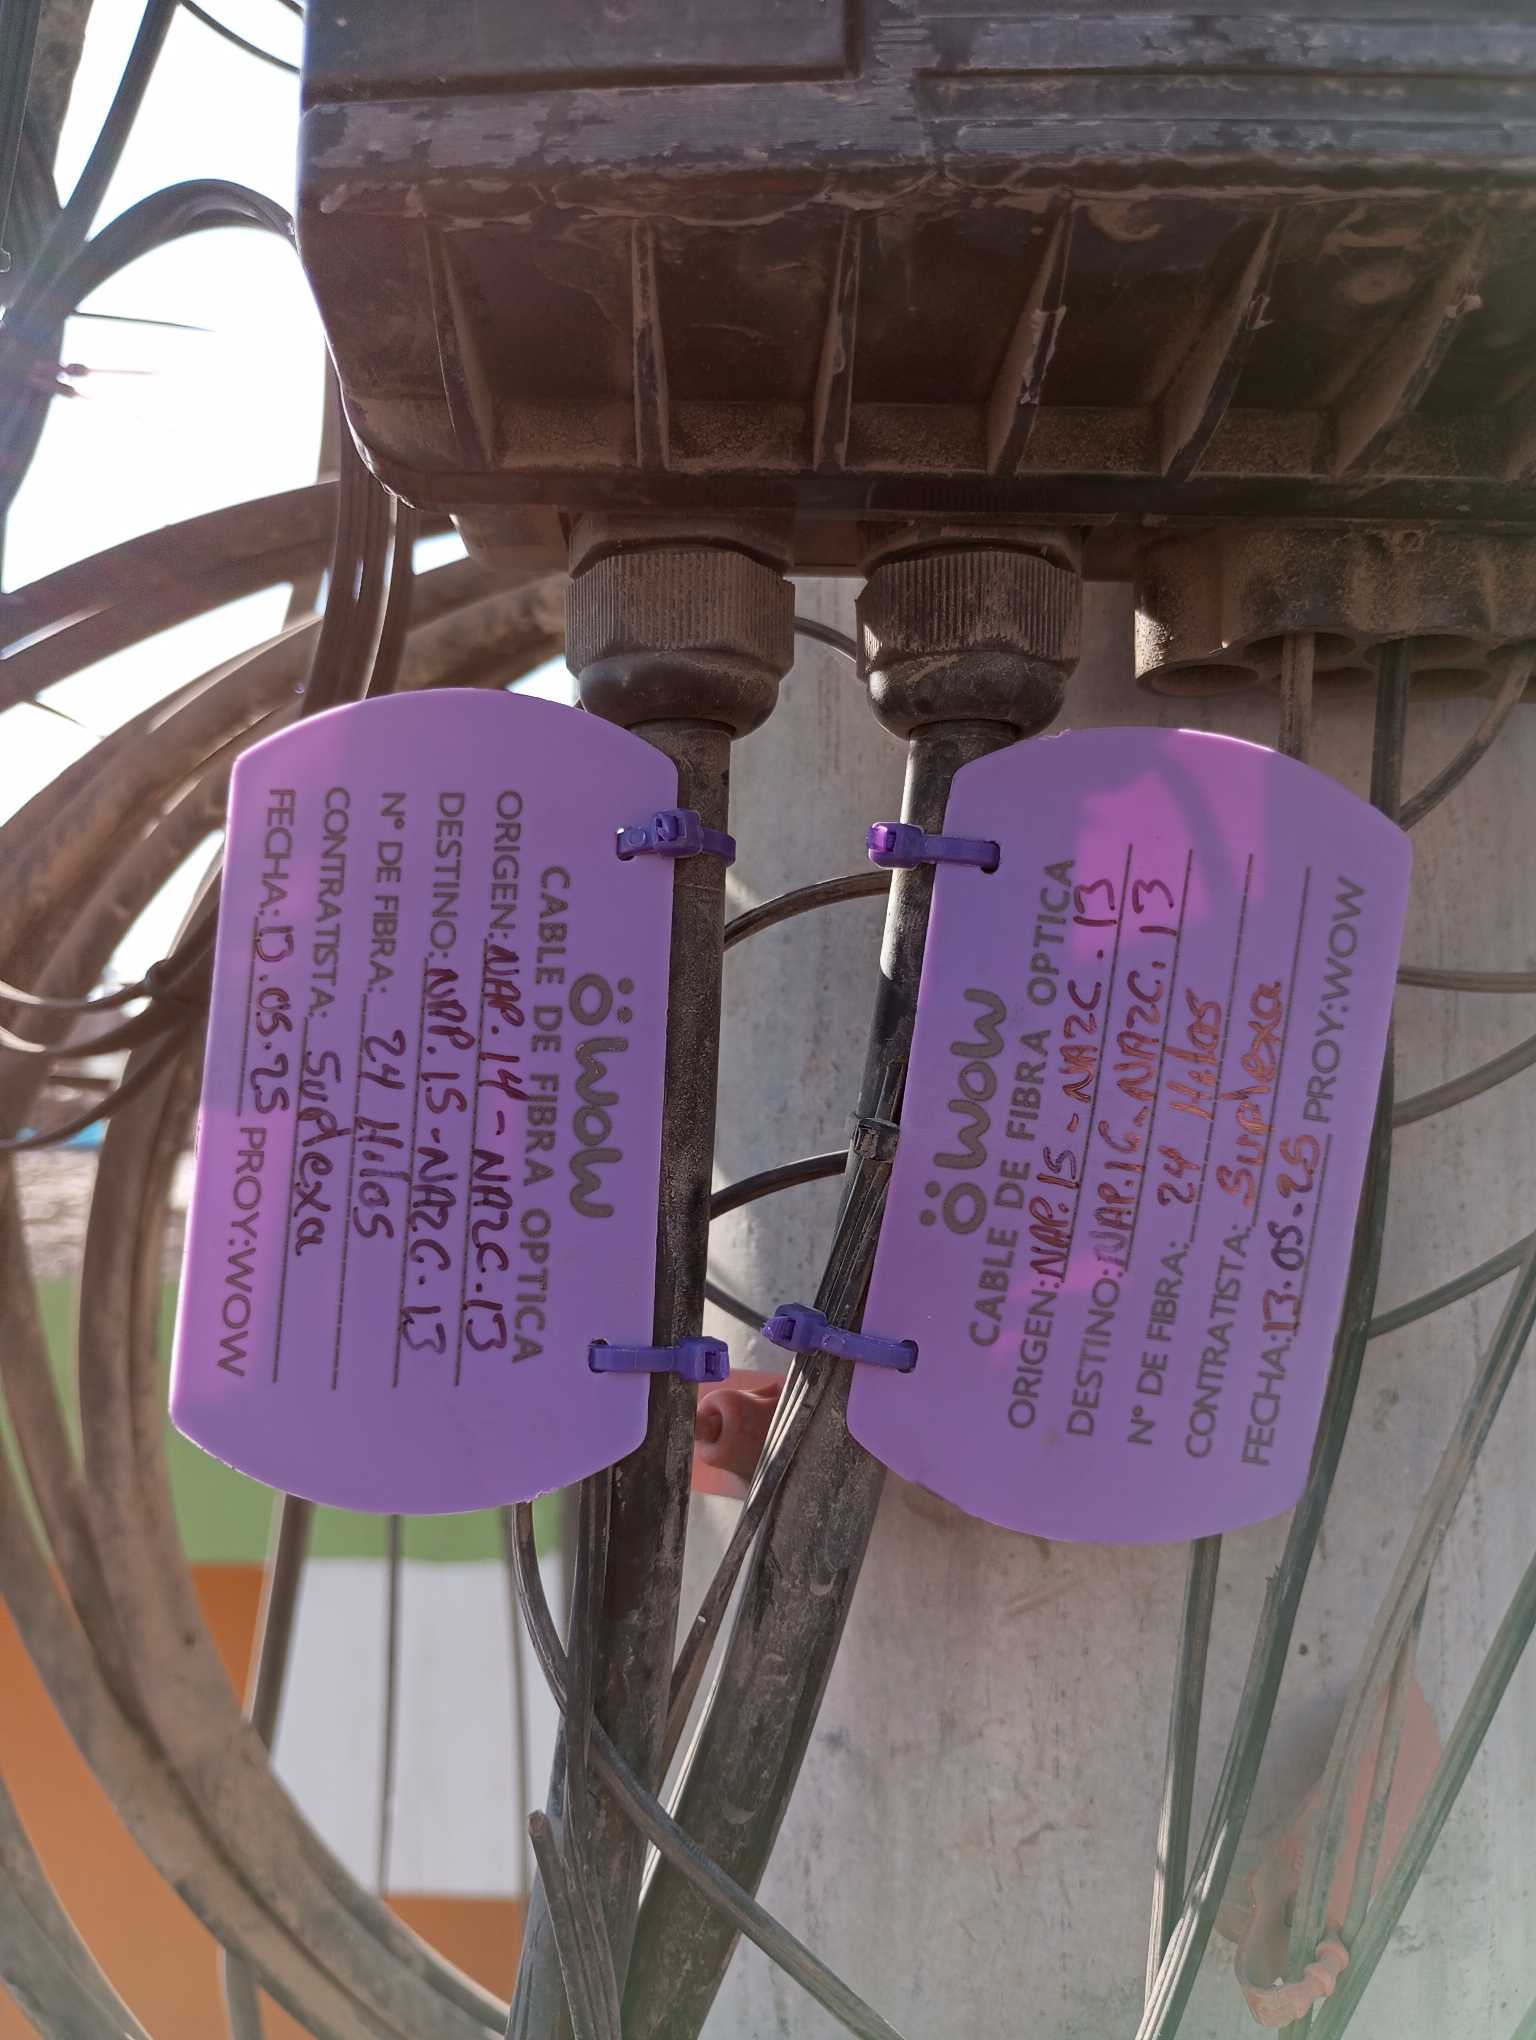 wow
CABLE DE FIBRA OPTICA
ORIGEN: NAP.14-NAZC.13
DESTINO: NAP.15-NAZC.13
N° DE FIBRA: 24 Hilos
CONTRATISTA: Suplexa
FECHA: 13.05.25 PROY: WOW
wow
CABLE DE FIBRA OPTICA
ORIGEN: NAP.15-NAZC.13
DESTINO: NAP.16-NAZC.13
N° DE FIBRA: 24 Hilos
CONTRATISTA: Suplexa
FECHA: 13.05.25 PROY: WOW